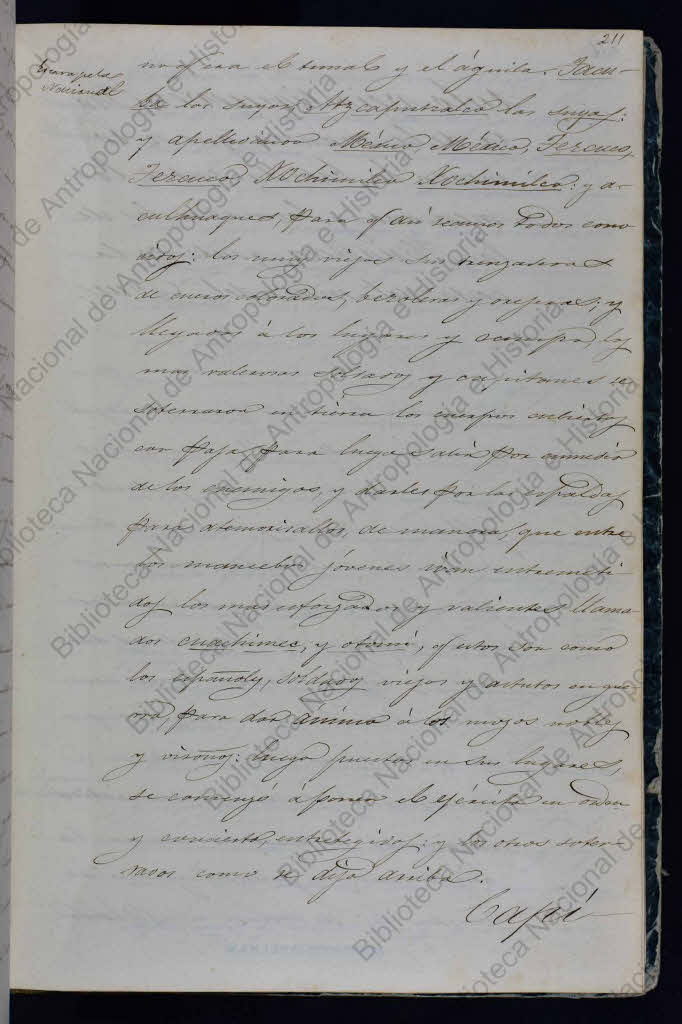 211
Nacional
no q era el tunal y el águila. Tacu-
ba los suyos, Atzcaputzalco las suyas:
y apellidando México México, Tezcuco,
Tezcuco, Xochimilco Xochimilco: y a-
culhuaques, para q asi seamos todos cono-
cidos: los muy viejos sus trenzaderas
de cueros colorados, bezoleras y orejeras; y
llegados á los lugares y campo, los
mas valerosos soldados y capitanes se
soterraron en tierra los cuerpos cubiertos
con paja, para luego salir por enmedio
de los enemigos, y darles por las espaldas
para atemorisallos, de manera, que entre
dos mancebos jóvenes ivan entremeti-
dos los mas esforzados y valientes llama-
dos cuachimec, y otomi, q estos son como
los españoles, soldados viejos y astutos en gue-
rra, para dar ánimo á los mozos nobles
y visoños: luego puestos en sus lugares,
se comenzó á poner el ejército en orden
y concierto, entretegidos: y los otros soter-
rados como se dijo arriba.
Capí
Biblioteca Nacional de Antropología e Historia